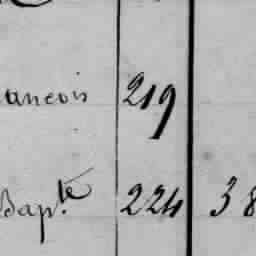 ancois 219
Bap.te 224 38